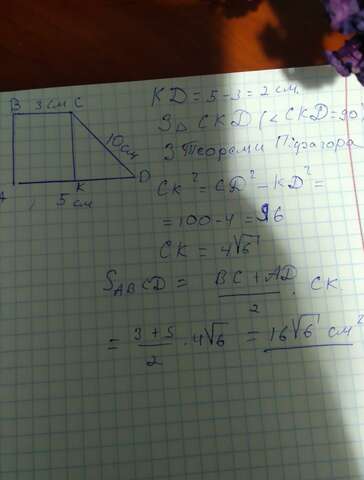 B 3 см C
10 см
A K D
5 см
KD = 5 - 3 = 2 см.
З △ CKD (∠CKD = 90
З Теореми Піфагора
CK² = CD² - KD² =
= 100 - 4 = 96
CK = 4√6
S ABCD = BC + AD / 2 · CK.
= 3 + 5 / 2 · 4√6 = 16√6 см²